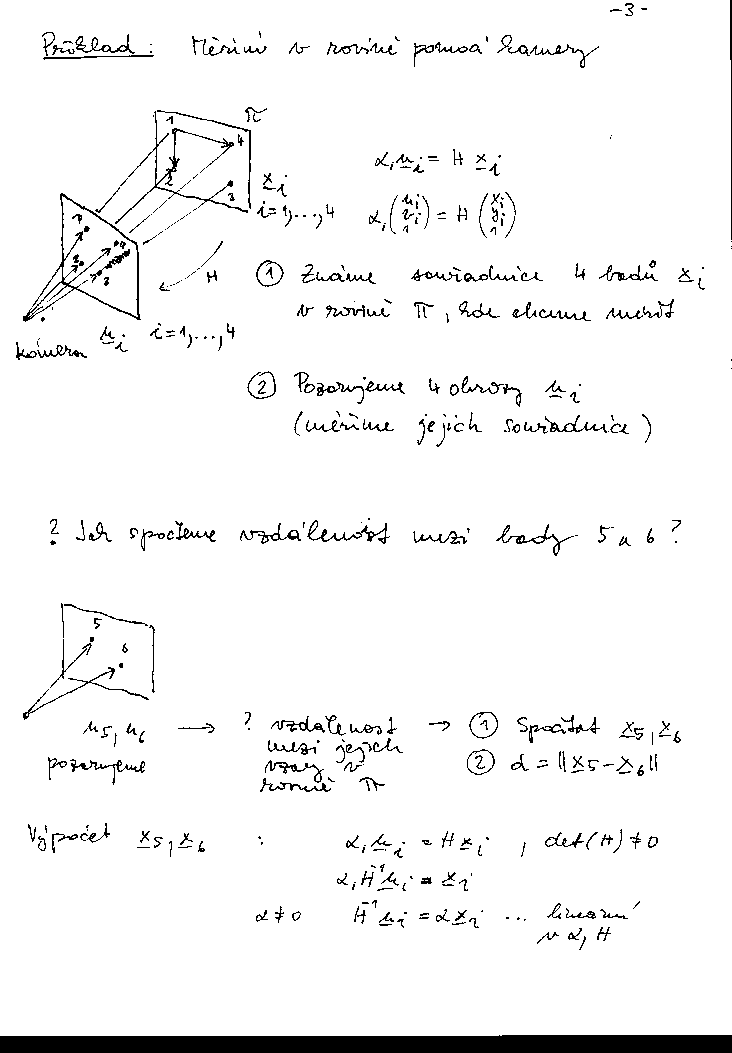 -3-
Příklad: Měření v rovině pomocí kamery
π
1
4
2
3
x_i
i=1,...,4
α_i u_i = H x_i
α_i (u_i v_i 1) = H (x_i y_i 1)
H
① Známe souřadnice 4 bodů x_i
v rovině π, kde chceme měřit
kamera u_i i=1,...,4
② Pozorujeme 4 obrazy u_i
(měříme jejich souřadnice)
? Jak spočteme vzdálenost mezi body 5 a 6?
5
6
u_5, u_6 → ? vzdálenost → ① Spočítat x_5, x_6
pozorujeme mezi jejich ② d = ||x_5 - x_6||
vzory v
rovině π
Výpočet x_5, x_6 : α_i u_i = H x_i , det(H) ≠ 0
α_i H^-1 u_i = x_i
α ≠ 0 H^-1 u_i = α x_i ... lineární
v α, H